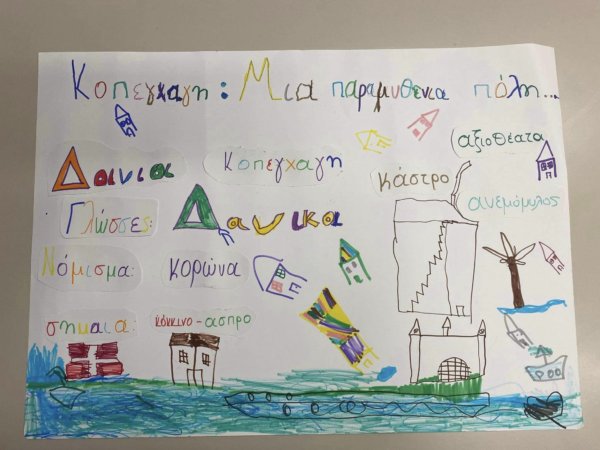 Κοπεγχαγη: Μια παραμυθενια πόλη...
(αξιοθέατα
Δανια Κοπεγχαγη
κάστρο ανεμόμυλος
Γλώσσες: Δανικα
Νόμισμα: κορώνα
σημαια: κόκκινο-ασπρο